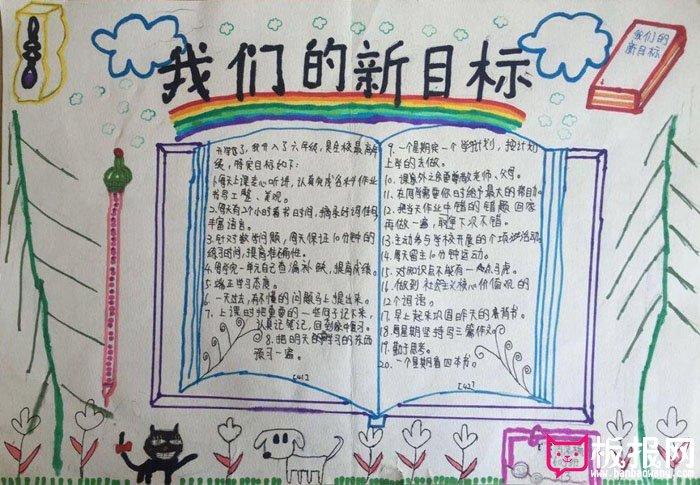 我们的新目标
我们的
新目标
开学了，我升入了六年级，是全校最高年
级，我定目标如下：
1.每天上课专心听讲，认真完成各科作业
书写工整、美观。
2.每天有2个小时看书时间，摘录好词佳句
丰富语言。
3.针对数学问题，每天保证10分钟的
练习时间，提高准确性。
4.每学完一单元自己查漏补缺，提高成绩。
5.端正学习态度。
6.一天过去，有不懂的问题马上提出来。
7.上课时把重要的一些句子记下来，
认真记笔记，回到家中复习。
8.把明天的要学习的东西
预习一遍。
[41]
9.一个星期定一个学习计划，按计划
上学的去做。
10.课里外之余要尊敬老师、父母。
11.在同学需要你时给予最大的帮助。
12.把当天作业中错的错题回家
再做一遍，到下次不错。
13.主动参与学校开展的个项进活动。
14.每天留主10分钟运动。
15.对知识点不能有一点点马虎。
16.做到社会主义核心价值观的
12个词语。
17.早上起来巩固昨天的看背书。
18.每星期坚持写三篇作文。
19.勤于思考。
20.一个星期看四本书。
[42]
板报网
www.banbaowang.com